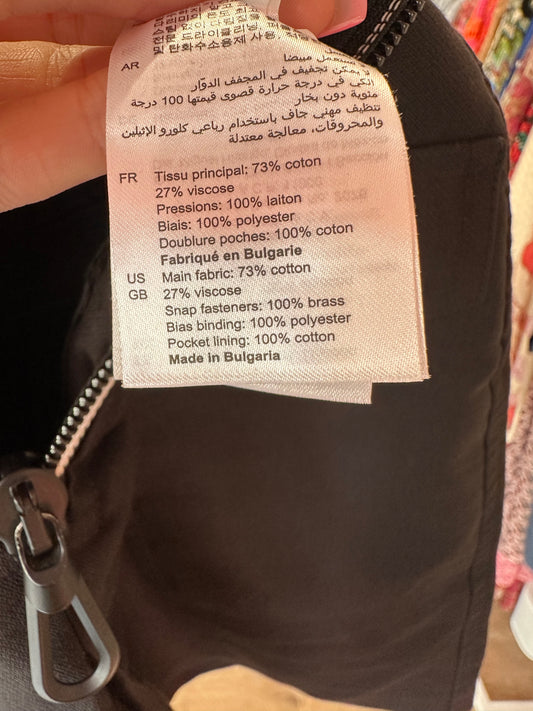 드라이클리닝
및 탄화수소용제 사용,
AR
لا يمكن تجفيف في المجفف الدوّار
الكي في درجة حرارة قصوى قيمتها 100 درجة
مئوية دون بخار
تنظيف مهني جاف باستخدام رباعي كلورو الإثيلين
والمحروقات، معالجة معتدلة
FR Tissu principal: 73% coton
27% viscose
Pressions: 100% laiton
Biais: 100% polyester
Doublure poches: 100% coton
Fabriqué en Bulgarie
US Main fabric: 73% cotton
GB 27% viscose
Snap fasteners: 100% brass
Bias binding: 100% polyester
Pocket lining: 100% cotton
Made in Bulgaria